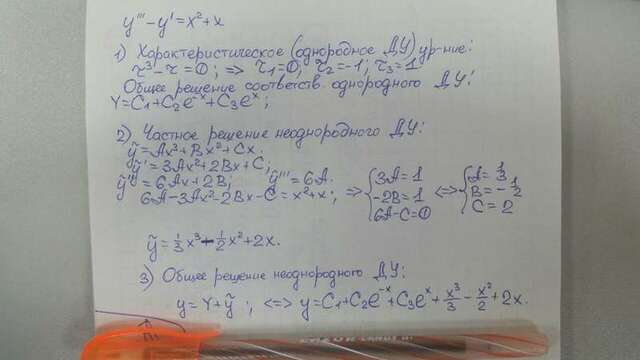 y''' - y' = x² + x
1) Характеристическое (однородное ДУ) ур-ние:
r³ - r = 0; => r₁ = 0; r₂ = -1; r₃ = 1
Общее решение соответств. однородного ДУ:
Y = C₁ + C₂e⁻ˣ + C₃eˣ;
2) Частное решение неоднородного ДУ:
ỹ = Ax³ + Bx² + Cx.
ỹ' = 3Ax² + 2Bx + C;
ỹ'' = 6Ax + 2B; ỹ''' = 6A.
6A - 3Ax² - 2Bx - C = x² + x; => { 3A = 1 -2B = 1 6A - C = 0 <=> { A = 1/3 B = -1/2 C = 2
ỹ = 1/3 x³ - 1/2 x² + 2x.
3) Общее решение неоднородного ДУ:
y = Y + ỹ; <=> y = C₁ + C₂e⁻ˣ + C₃eˣ + x³/3 - x²/2 + 2x.